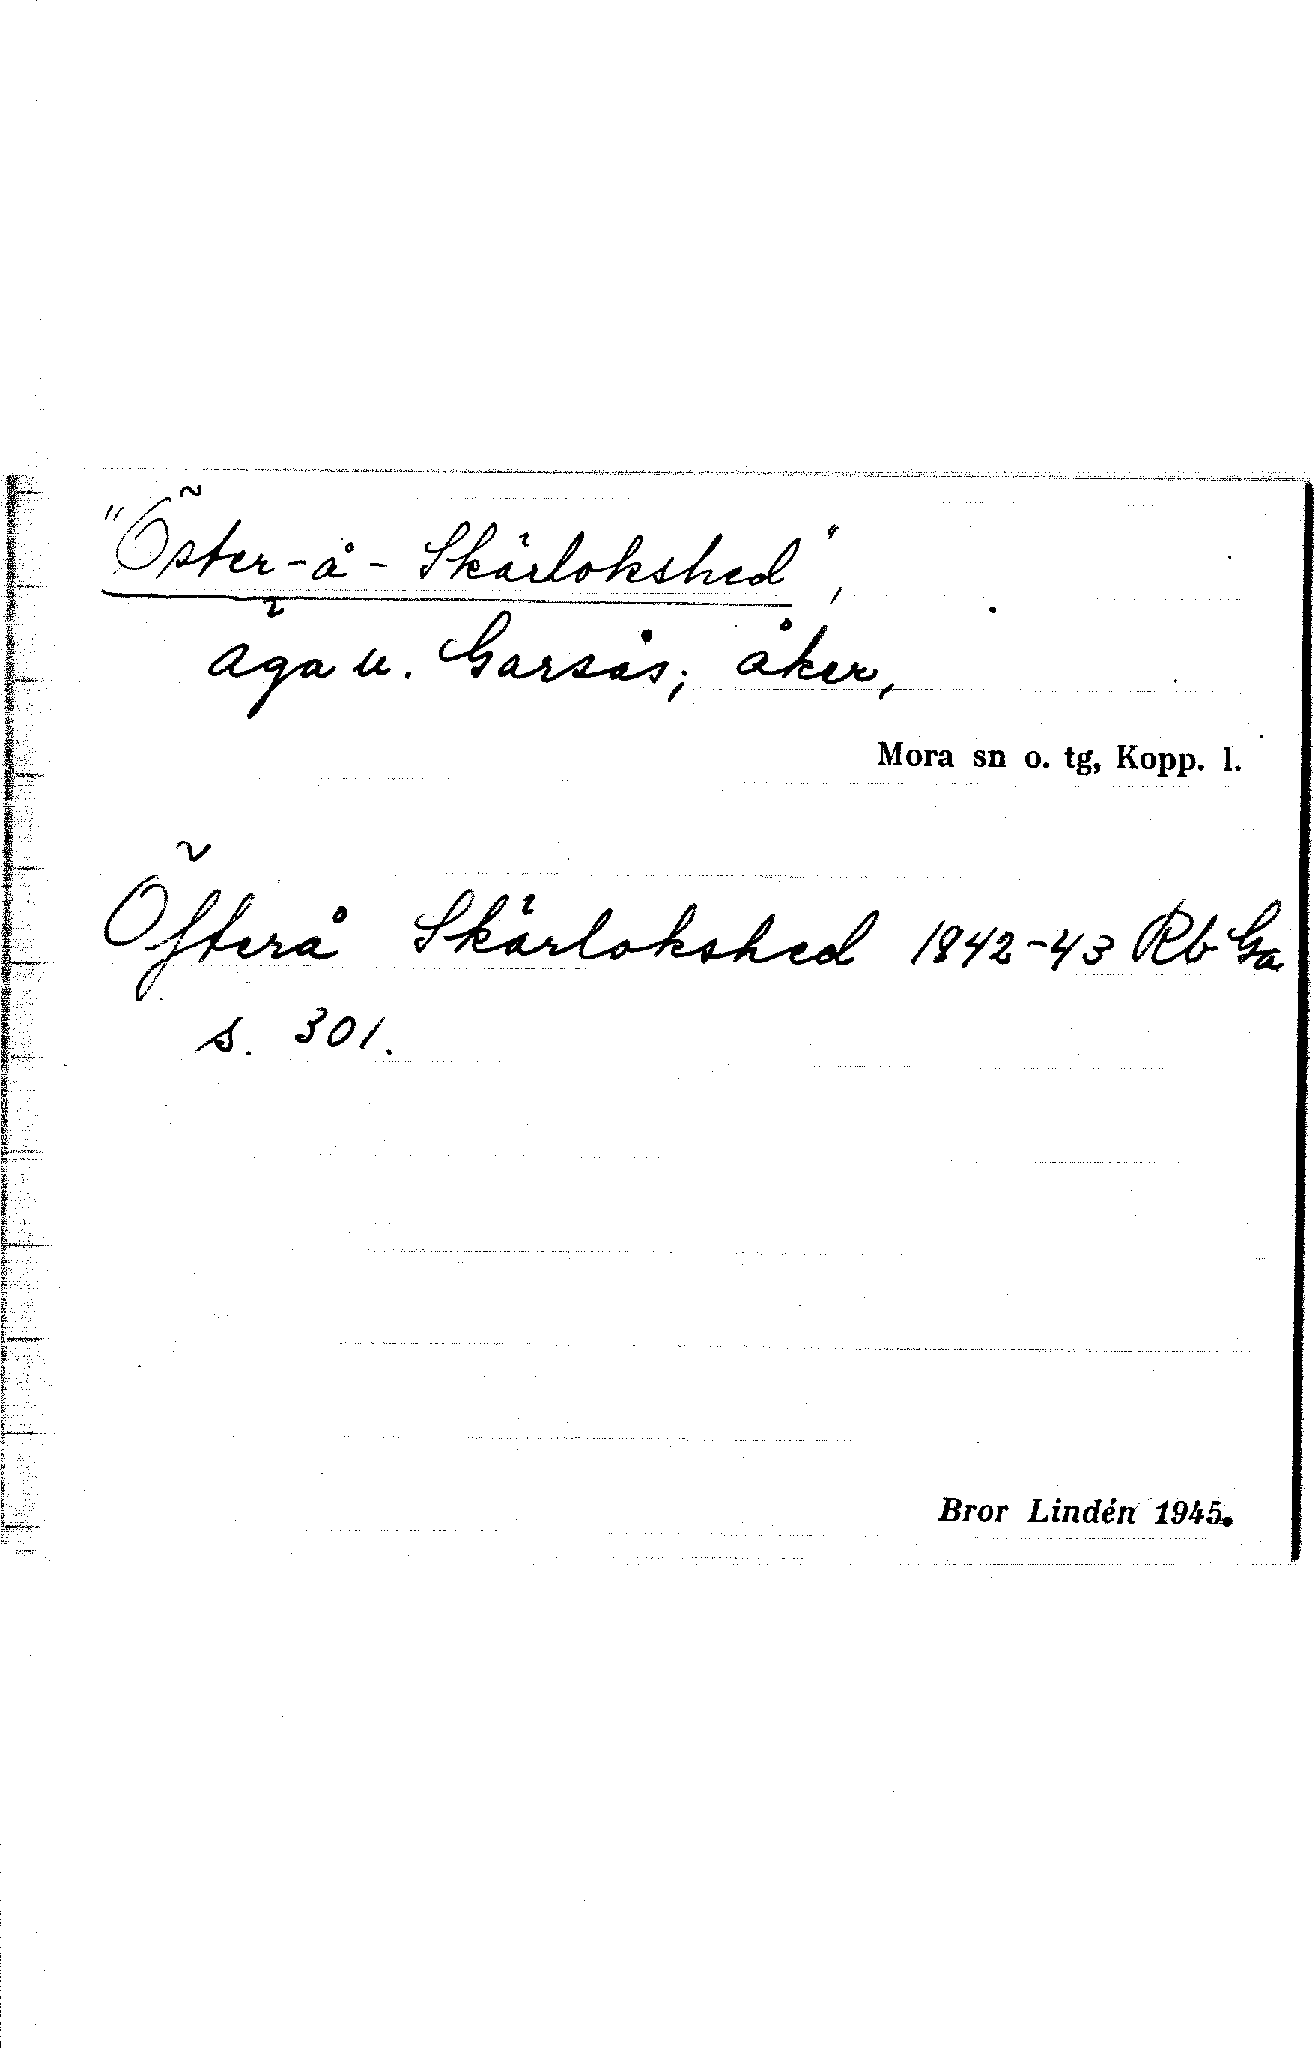 "Öster-å-Skärlokshed",
äga u. Garsås; åker,
Mora sn o. tg, Kopp. l.
Öfterå Skärlokshed 1842-43 Rb Ga
s. 301.
Bror Lindén 1945.